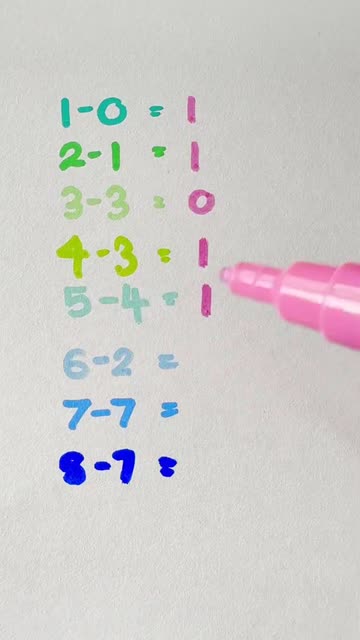 1-0 = 1
2-1 = 1
3-3 = 0
4-3 = 1
5-4 = 1
6-2 =
7-7 =
8-7 =